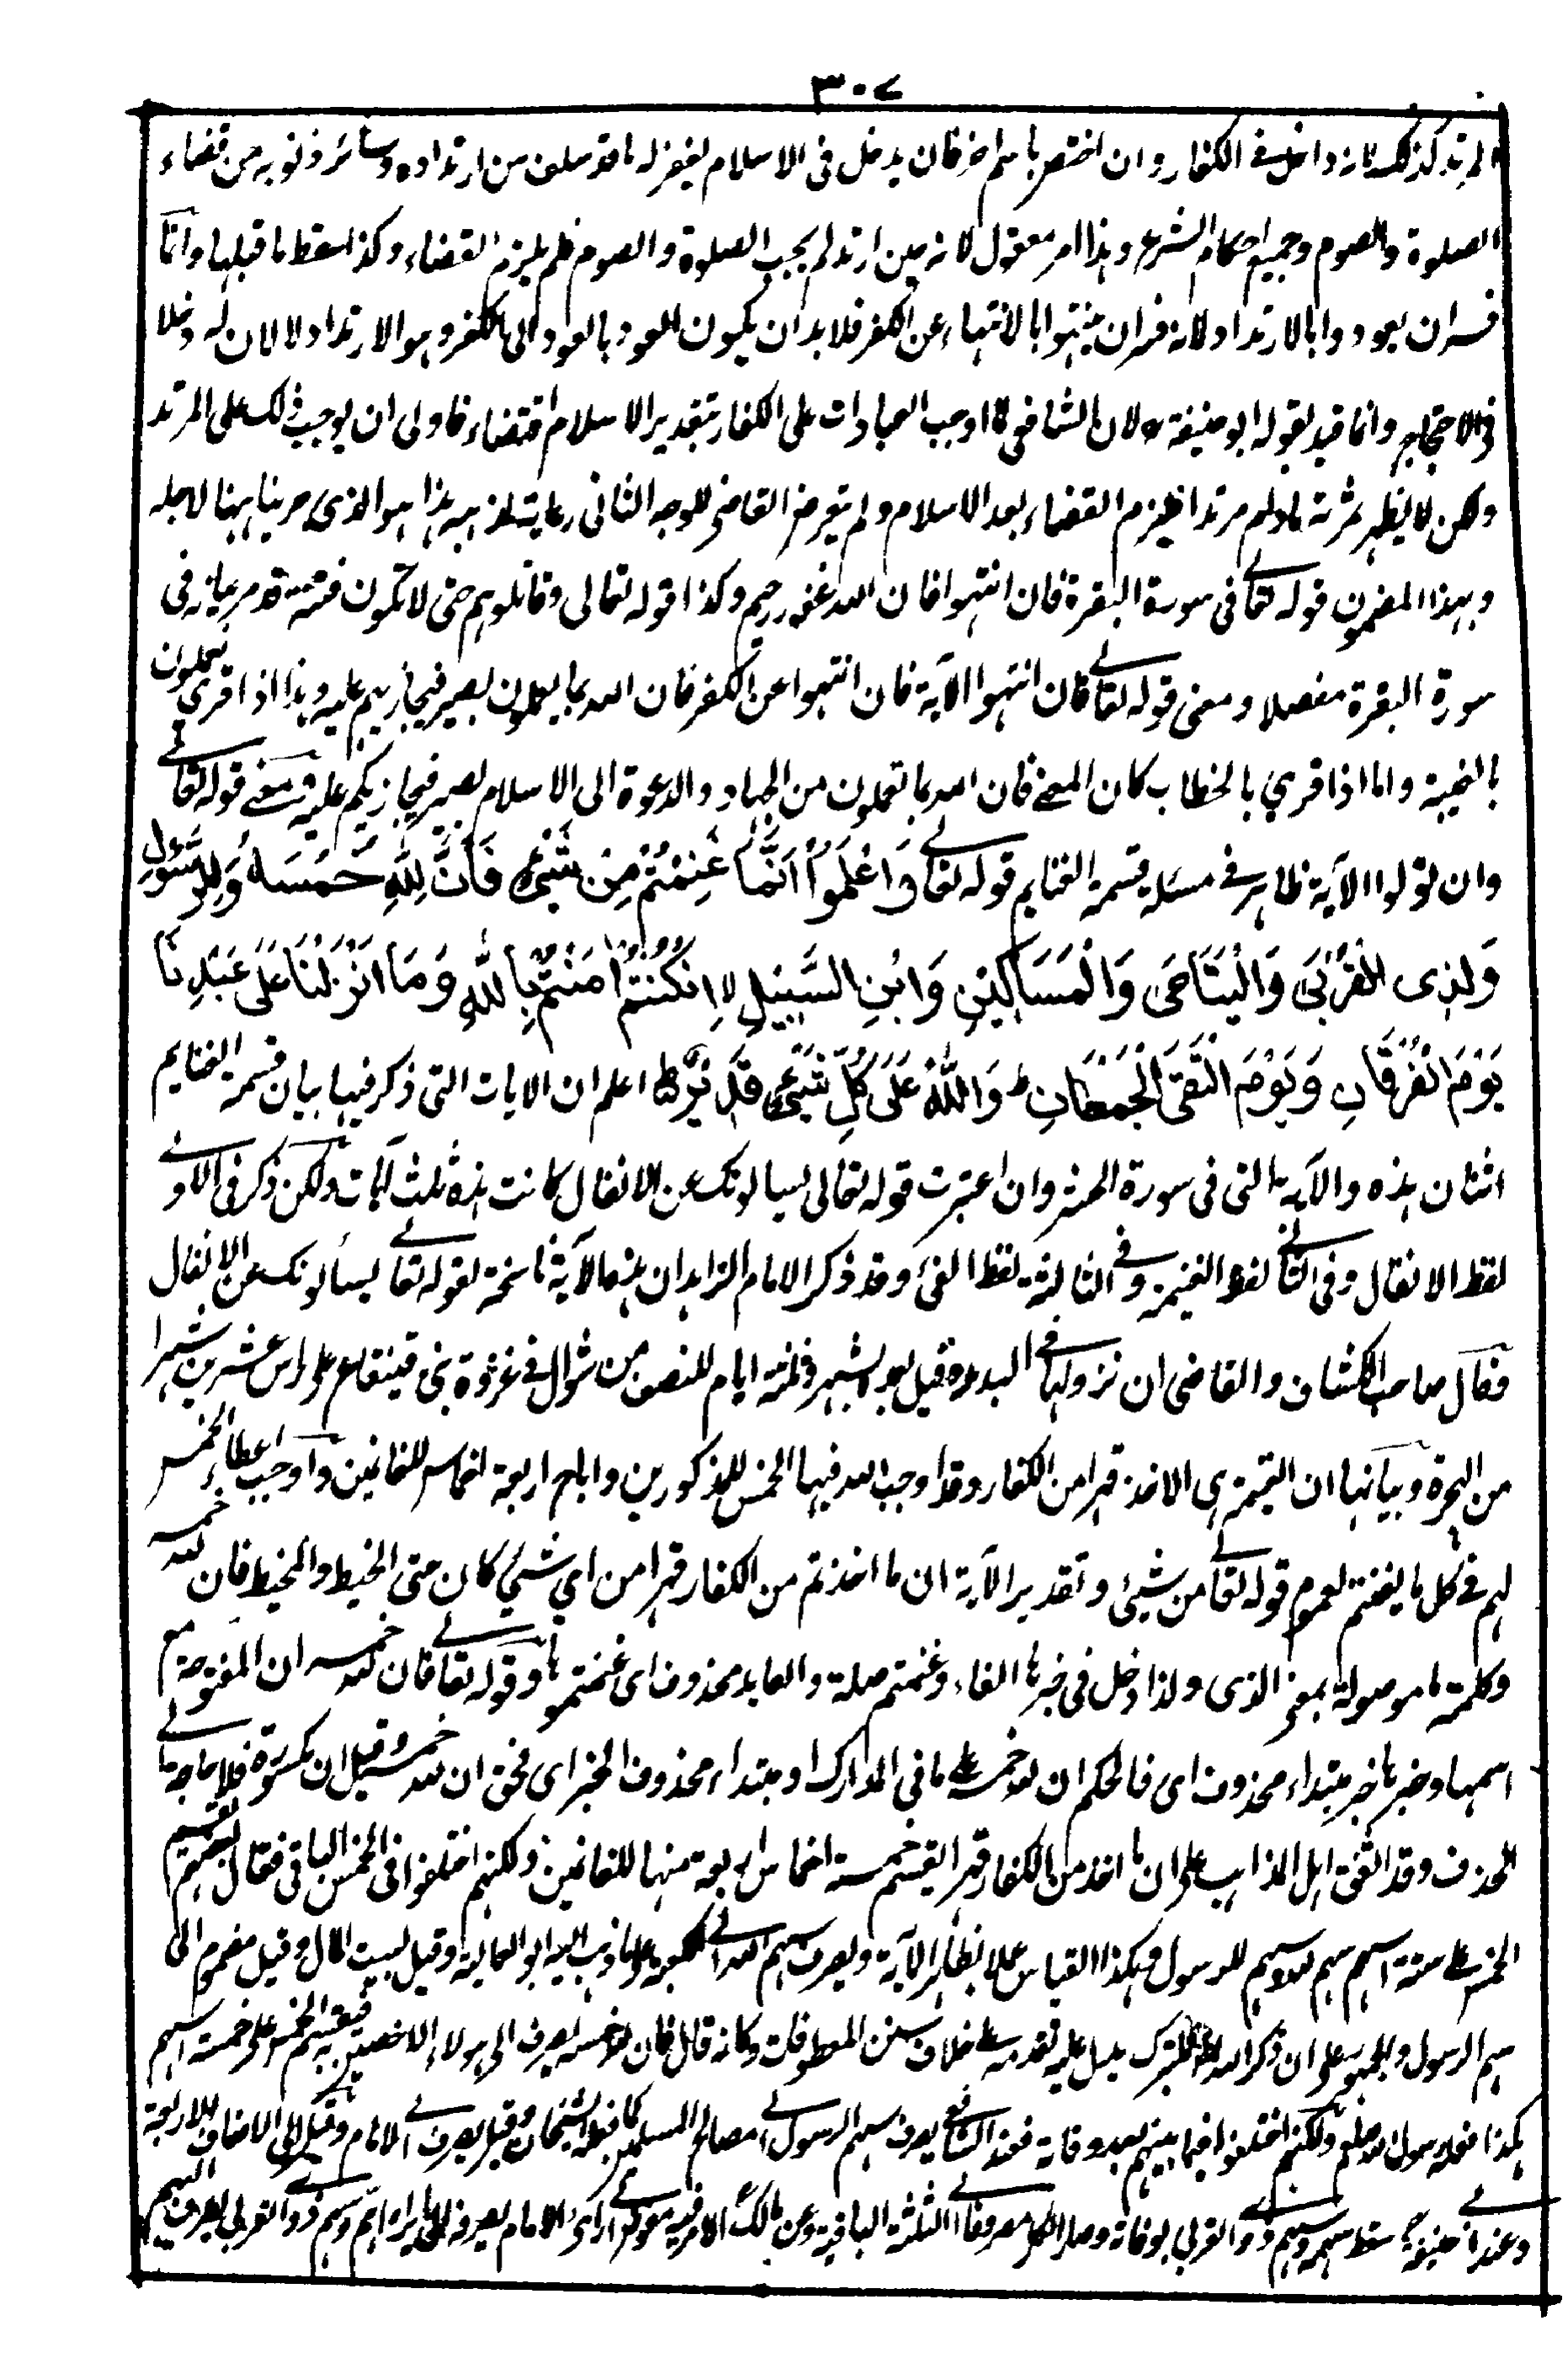 ٣٠٧
المرتد كذلك لانه داخل في الكفار وان اختص باسم اخر فان يدخل في الاسلام يغفر له ما قد سلف من ارتداده وسائر ذنوبه من قضاء
الصلوة والصوم وجميع احكام الشرع وهذا امر معقول لانه حين ارتد لم يجب الصلوة والصوم فلم يلزم القضاء وكذا اسقط ما قبلها وانما
فسر ان يعودوا بالارتداد لانه فسر ان ينتهوا بالانتهاء عن الكفر فلا بد ان يكون العود بالعود الى الكفر وهو الارتداد لا لان له دخلا
في الاحتجاج وانما قيد بقوله ابو حنيفة رح لان الشافعي لما اوجب العبادات على الكفار بتقدير الاسلام اقتضاء فاولى ان يوجب ذلك على المرتد
ولكن لا يظهر ثمرته ما دام مرتدا فيلزم القضاء بعد الاسلام ولم يتعرض القاضي للوجه الثاني رعاية لمذهبه هذا هو الذي جرينا ههنا لاجله
وبهذا المضمون قوله تعا في سورة البقرة فان انتهوا فان الله غفور رحيم وكذا قوله تعالى وقاتلوهم حتى لا تكون فتنة قد مر بيانه في
سورة البقرة مفصلا ومعنى قوله تعالے فان انتهوا الآية فان انتهوا عن الكفر فان الله بما يعملون بصير فيجازيهم عليه وهذا اذا قرئ يعملون
بالغيبة واما اذا قرئ بالخطاب كان المعنے فان الله بما تعملون من الجهاد والدعوة الى الاسلام بصير فيجازيكم عليه ومعنے قوله تعالے
وان تولوا الآية ظاهر في مسئلة قسمة الغنايم قوله تعالے وَاعْلَمُوْا اَنَّمَا غَنِمْتُمْ مِنْ شَيْئٍ فَاَنَّ لِلّٰهِ خُمُسَهٗ وَلِلرَّسُوْلِ
وَلِذِى الْقُرْبٰى وَالْيَتَامَى وَالْمَسَاكِيْنِ وَابْنِ السَّبِيْلِ لا اِنْ كُنْتُمْ اٰمَنْتُمْ بِاللّٰهِ وَمَا اَنْزَلْنَا عَلَى عَبْدِنَا
يَوْمَ الْفُرْقَانِ وَيَوْمَ الْتَقَى الْجَمْعَانِ ط وَاللّٰهُ عَلَى كُلِّ شَيْئٍ قَدِيْرٌ ط اعلم ان الايات التي ذكر فيها بيان قسمة الغنايم
اثنان هذه والآية التي في سورة الحشر وان اعتبرت قوله تعالى يسالونك عن الانفال كانت هذه ثلث آيات ولكن ذكر في الاولے
لفظ الانفال وفي الثانے لفظ الغنيمة وفے الثالثة لفظ الفئ وقد ذكر الامام الزاهد ان هذه الآية ناسخة لقوله تعالے يسألونك عن الانفال
فقال صاحب الكشاف والقاضي ان نزولها في البدر وقيل بعده بشهر وثلثة ايام للنصف من شوال في غزوة بني قينقاع على راس عشرين شهرا
من الهجرة وبيانها ان الغنيمة هي الاخذ قهرا من الكفار وقد اوجب الله فيها الخمس للمذكورين واباح اربعة اخماس للغانمين واوجب اعطاء الخمس
لهم في كل ما يغنتم لعموم قوله تعالے من شيئ وتقدير الآية ان ما اخذتم من الكفار قهرا من اي شيئ كان حتى الخيط والمخيط فان لله خمسه
وكلمة ما موصولة بمعنى الذي ولذا دخل في خبرها الفاء وغنمتم صلة والعايد محذوف اى غنمتموها وقوله تعالے فان لله خمسه ان المفتوحة مع
اسمها وخبرها خبر مبتداء محذوف اى فالحكم ان لله خمسه على ما في المدارك او مبتداء محذوف الخبر اى فحق ان لله خمسه وقيل ان مكسورة فلا حاجة الے
الحذف وقد اتفق اهل المذاهب على ان ما اخذ من الكفار قهرا يقسم خمسة اخماس اربعة منها للغانمين ولكنهم اختلفوا في الخمس الباقي فقال بعضهم يقسم
الخمس علے ستة اسهم سهم لله وسهم للرسول وهكذا القياس عملا بظاهر الآية ويصرف سهم الله الى الكعبة على ما ذهب اليه ابو العالية وقيل لبيت المال وقيل مضموم الى
سهم الرسول والجمهور على ان ذكر الله للتبرك يدل عليه تقديمه علے خلاف سنن المعطوفات وكانه قال فان لله خمسه يصرف الى هؤلاء الاخصين به فيقسم الخمس على خمسة اسهم
هكذا فعله رسول الله صلعم ولكنهم اختلفوا فيما بينهم بعد وفاته فعند الشافعي يصرف سهم الرسول الے مصالح المسلمين كما فعله الشيخان وقيل يصرف الے الامام وقيل الى الاصناف الاربعة
وعند ابي حنيفة رح سقط سهمه وسهم ذوى القربى بوفاته وصار الكل مصروفا الے الثلثة الباقية وعن مالك الامر فيه مفوض الے راى الامام يصرفه الى ما يراه اهم وسهم ذوى القربى يصرف اليهم